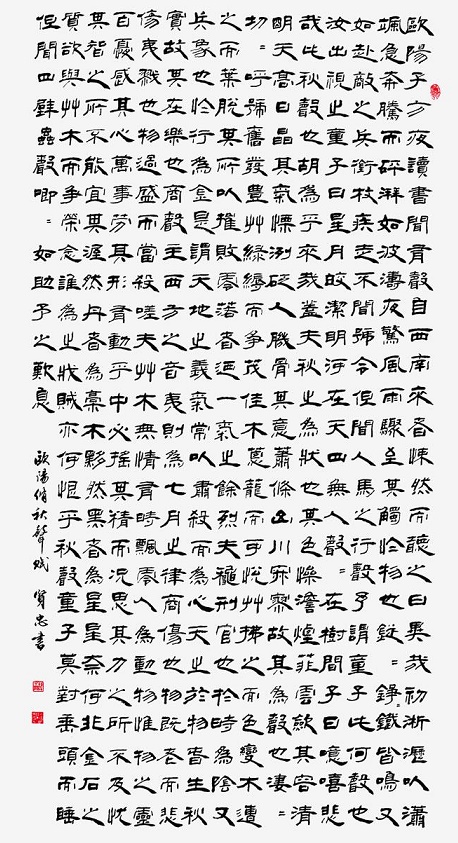 歐陽子方夜讀書聞有聲自西南來者悚然而聽之曰異哉初淅瀝以瀟
颯忽奔騰而砰湃如波濤夜驚風雨驟至其觸於物也鏦〻錚〻鐵皆鳴又
如赴敵之兵銜枚疾走不聞號令但聞人馬之行聲予謂童子此何聲也
汝出視之童子曰星月皎潔明河在天四無人聲〻在樹間予曰噫嘻悲
哉此秋聲也胡為乎來哉蓋夫秋之為狀也其色慘澹煙霏雲斂其容清
明天高日晶其氣慄冽砭人肌骨其意蕭條山川寂寥故其為聲也淒〻
切〻呼號奮發豐草綠縟而爭茂佳木蔥蘢而可悅草拂之而色變木遭
之而葉脫其所以摧敗零落者迺一氣之餘烈夫秋刑官也於時為陰又
兵象也於行為金是謂天地之義氣常以肅殺而為心天之於物春生秋
實故其在樂也商聲主西方之音夷則為七月之律商傷也物既老而悲
傷夷戮也物過盛而當殺嗟夫草木無情有時飄零人為動物惟物之靈
百憂感其心萬事勞其形有動乎中必搖其精而況思其力之所不及憂
其智之所不能宜其渥然丹者為槁木黟然黑者為星星奈何非金石之
質欲與草木而爭榮念誰為之戕賊亦何恨乎秋聲童子莫對垂頭而睡
但聞四壁蟲聲唧〻如助予之歎息
歐陽脩秋聲賦 忠書